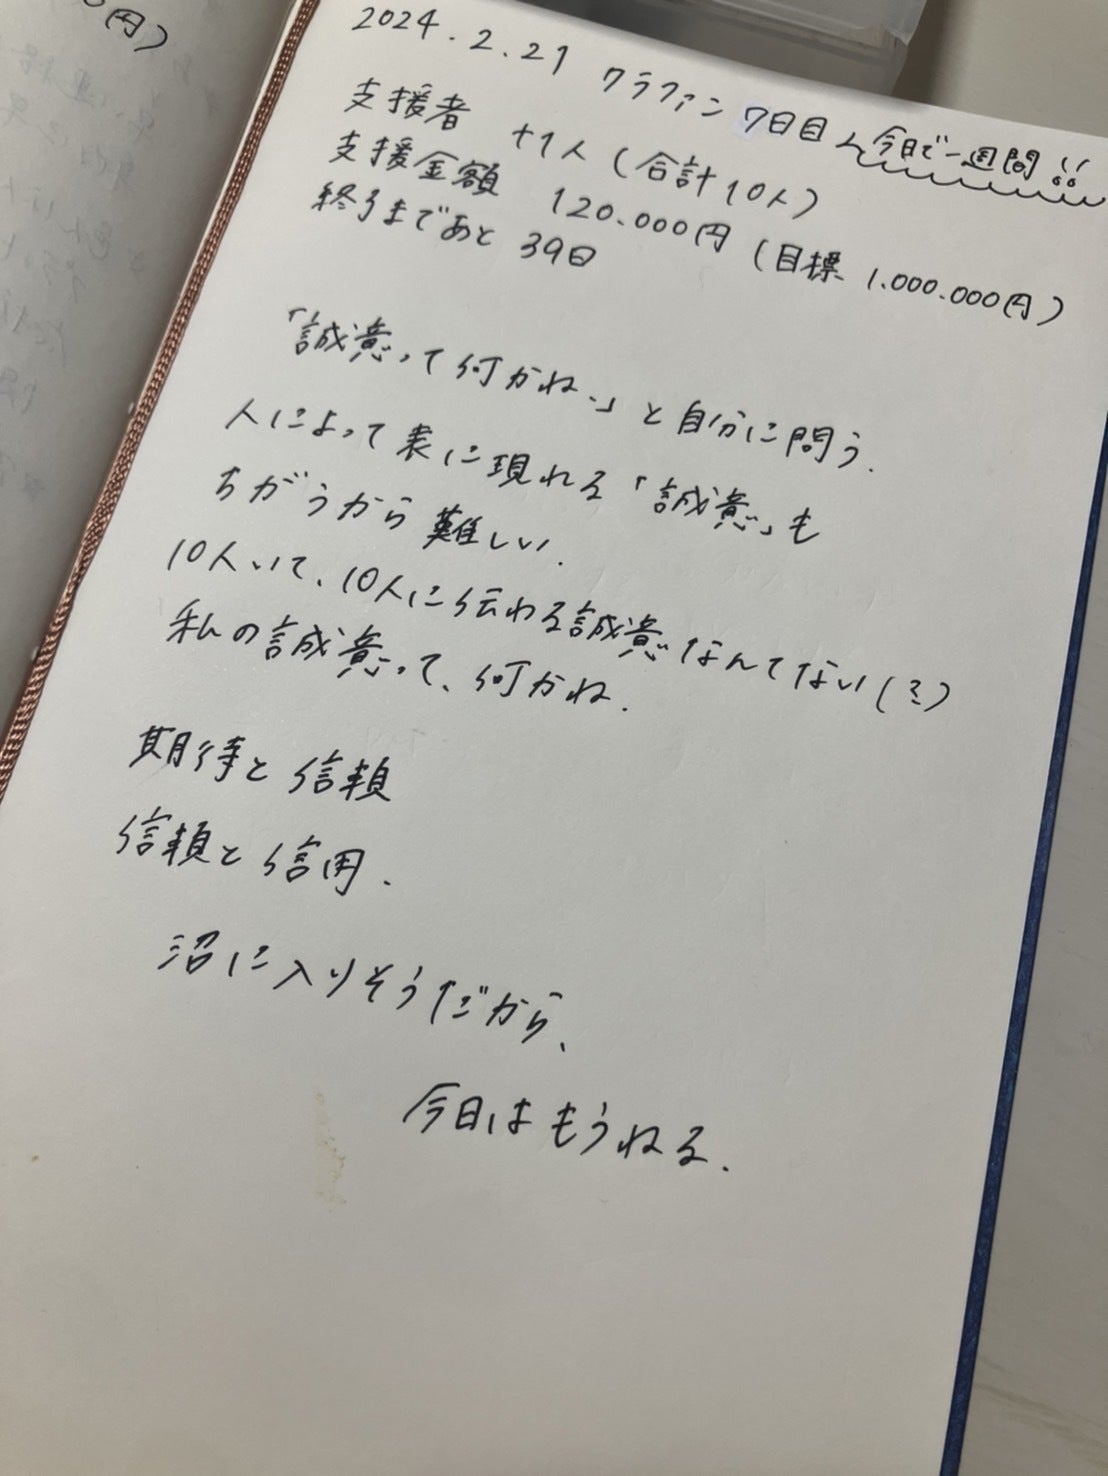 円)
2024.2.21 クラファン 7日目 今日で一週間!!
支援者 +1人(合計10人)
支援金額 120.000円(目標 1.000.000円)
終了まであと 39日
「誠意って何かね、」と自分に問う.
人によって表に現れる「誠意」も
ちがうから難しい.
10人いて、10人に伝わる誠意なんてない(?)
私の誠意って、何かね.
期待と信頼
信頼と信用.
沼に入りそうだから、
今日はもうねる.